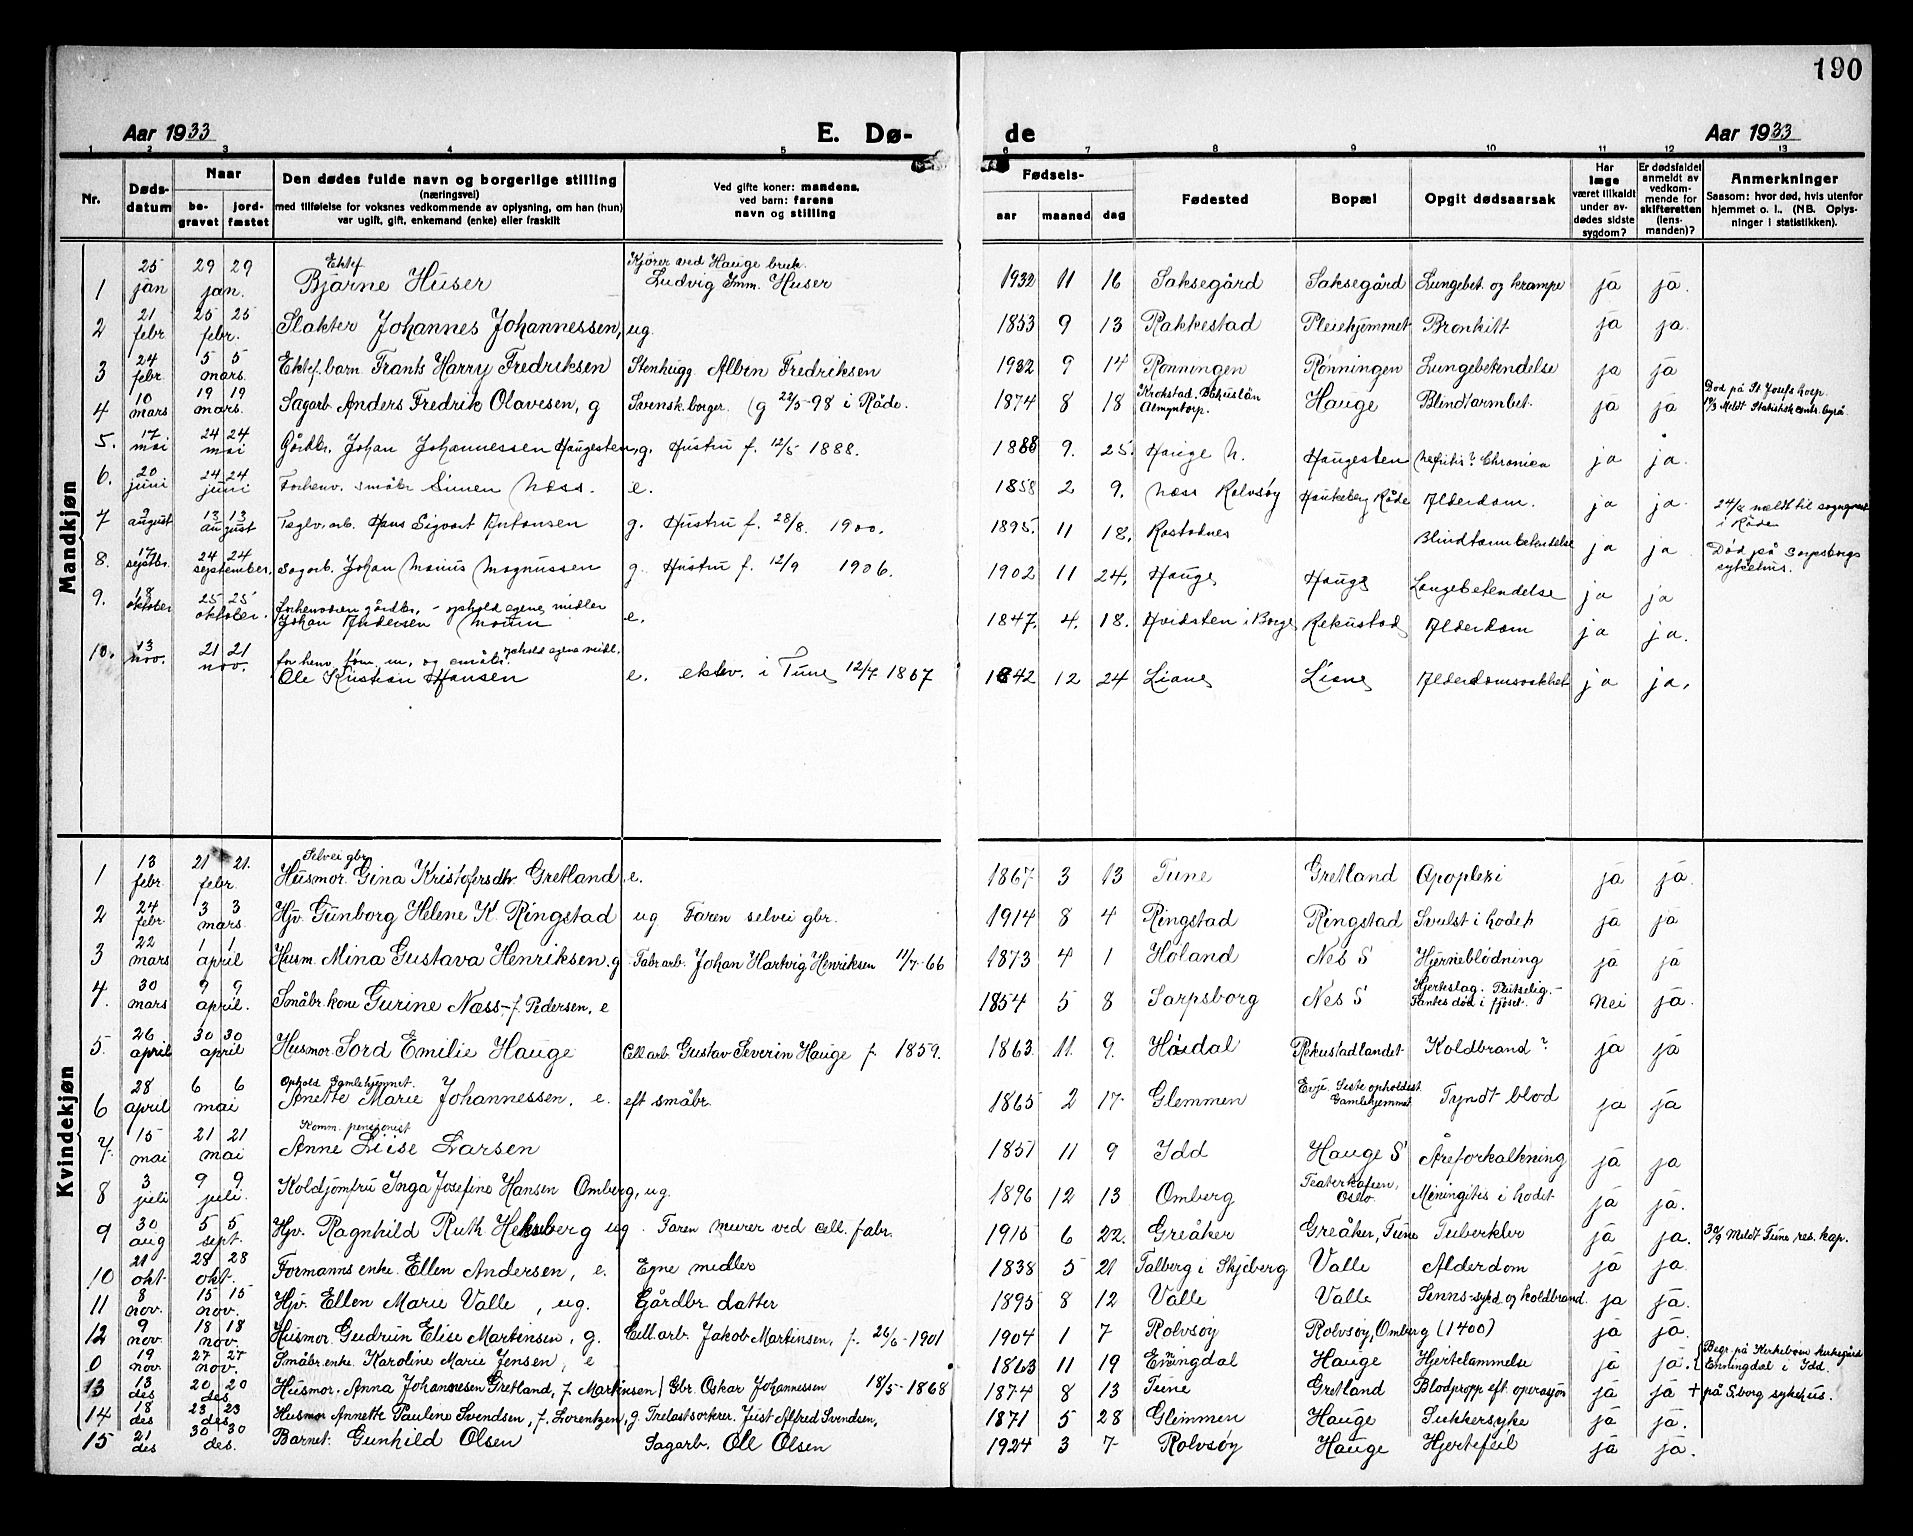 190
Aar 1933 E. Dø- de Aar 1933
1 2 3 4 5 6 7 8 9 10 11 12 13
Nr. Dødsdatum Naar begravet jordfæstet
Den dødes fulde navn og borgerlige stilling
(næringsvei)
med tilføielse for voksnes vedkommende av oplysning, om han (hun)
var ugift, gift, enkemand (enke) eller fraskilt
Ved gifte koner: mandens,
ved barn: farens
navn og stilling
Fødsels- aar maaned dag
Fødested Bopæl Opgit dødsaarsak
Har læge været tilkaldt under avdødes sidste sygdom?
Er dødsfaldet anmeldt av vedkommende for skifteretten (lensmanden)?
Anmerkninger
Saasom: hvor død, hvis utenfor
hjemmet o. l.. (NB. Oplysninger i statistikken).
Mandkjøn
1 25 jan 29 29 jan. Ektef Bjarne Huser Kjører ved Hauge bruk. Ludvig Imm. Huser 1932 11 16 Saksegård Saksegård Lungebet. og krampe ja ja.
2 21 febr 25 25 febr. Slakter Johannes Johannessen, ug. 1853 9 13 Rakkestad Pleiehjemmet Bronkitt ja ja.
3 24 febr. 5 5 mars. Ektef. barn Frants Harry Fredriksen Stenhugg Albin Fredriksen 1932 9 14 Rønningen Rønningen Lungebetendelse ja ja
4 10 mars 19 19 mars. Sagarb Anders Fredrik Olavesen, g Svensk borger. (g 22/5-98 i Råde. 1874 8 18 Krokstad. Bohuslän Hauge Blindtarmbet. ja ja Død på St. Josefs hosp.
Meldt Statistisk centr. byrå
5. 17 mai 24 24 mai Gårdbr. Johan Johannessen Haugesten, g. Hustru f. 12/5 1888. 1888 9. 25. Hauge N. Haugesten Nefritis? Chronica ja ja.
6. 20 juni 24 24 juni Forhenv. småbr Simen Næss. e. 1858 2 9. Næss Rolvsøy Haukeberg Råde Alderdom. ja ja. 24/ meldt til sogneprest
i Råde
7 9 august 13 13 august Teglv. arb. Hans Sigvart Antonsen g. Hustru f. 28/8. 1900. 1895. 11 18. Rostadnes Blindtarmbetendelse ja ja. Død på Sarpsborgs
sykehus.
8. 17 septbr. 24 24 september. Sagarb. Johan Marius Magnussen g. Hustru f. 12/9 1906. 1902 11 24. Hauge Hauge Lungebetendelse ja ja
9. 18 oktober 25 25 oktober. forhenværen gårdbr. - ophold egene midler
Johan Andersen Moum e. 1847. 4. 18. Hvidsten i Borge Rekustad Alderdom ja ja.
10. 13 nov. 21 21 nov. forhenv. tøm. m. og småbr. ophold egene midl.
Ole Kristian Hansen e. ektev. i Tune 12/4 1867 1842 12 24 Liane Liane Alderdomssvakhet ja ja.
Kvindekjøn
1 13 febr. 21 21. febr. Selvei gbr Husmor. Gina Kristofersdtr. Gretland, e. 1867 3 13 Tune Gretland Apoplexi ja ja.
2 24 febr 3 3 mars. Hjv. Gunborg Helene K. Ringstad ug Faren selvei gbr. 1914 8 4 Ringstad Ringstad Svulst i hodet ja ja
3 22 mars 1 1 april Husm. Mina Gustava Henriksen, g Fabr. arb. Johan Hartvig Henriksen 11/7-66 1873 4 1 Høland Nes S Hjerneblødning ja ja
4. 30 mars 9 9 april. Småbr. kone Gurine Næss - f. Pedersen, e 1854 5 8 Sarpsborg Nes S Hjerteslag. Plutselig. -
Fantes død i fjøset. Nei ja.
5. 26 april 30 30 april Husmor Sord Emilie Hauge Cell arb. Gustav Severin Hauge f. 1859. 1863 11. 9. Hafsdal Rekustadlandet Koldbrand? ja ja
6 28 april 6 6 mai Ophold Gamlehjemmet. Anette Marie Johannessen, e. eft småbr. 1865 2 17 Glemmen Evje. Siste opholdsst. Gamlehjemmet Tyndt blod ja ja
7. 15 mai 21 21 mai Komm. pensjonist Anne Liise Larsen 1851 11 9 Idd Hauge S Åreforkalkning ja ja
8 3 juli 9 9 juli. Koldjomfru Inga Josefine Hansen Omberg, ug. 1896 12 13 Omberg Teaterkafeen, Oslo. Meningitis i hodet ja ja.
9 30 aug 5 5 sept. Hjv. Ragnhild Ruth Heksberg ug Faren murer ved cell. fabr. 1915 6 22. Greåker Greåker, Tune Tuberkler ja ja. 30/9 Meldt Tune res. kap.
10 21 okt. 28 28 okt. Formanns enke. Ellen Andersen, e. Egne midler 1838 5 21 Talberg i Skjeberg Valle Alderdom ja ja.
11 8 nov. 15 15 nov. Hjv. Ellen Marie Valle, ug. Gårdbr datter 1895 8 12 Valle Valle Senns-sykd. og koldbrand. ja ja.
12 9 nov. 18 18 nov. Husmor. Gudrun Elise Martinsen, g. Cell. arb. Jakob Martinsen, f. 26/6-1901 1904 1 7 Rolvsøy Rolvsøy, Omberg (1400) ja ja.
0 19 nov 27 27 nov. Småbr. enke. Karoline Marie Jensen, e 1863 11 19 Enningdal Hauge Hjertelammelse ja ja. Begr. på Kirkebøen kirkegård
Enningdal i Idd.
13 13 des 20 20 des. Husmor. Anna Johannesen Gretland, f. Martinsen Gbr. Oskar Johannessen 18/5-1868 1874 8 13 Tune Gretland Blodpropp eft. operasjon ja ja + på S.borg sykehus.
14 18 des 23 23 des. Husmor Annette Pauline Svendsen, f. Lorentzen, g. Trelastsorterer. Just Alfred Svendsen, 1871 5 28 Glemmen Hauge Sukkersyke ja ja.
15 21 des 30 30 des. Barnet. Gunhild Olsen Sagarb. Ole Olsen 1924 3 7 Rolvsøy Hauge Hjertefeil ja ja.